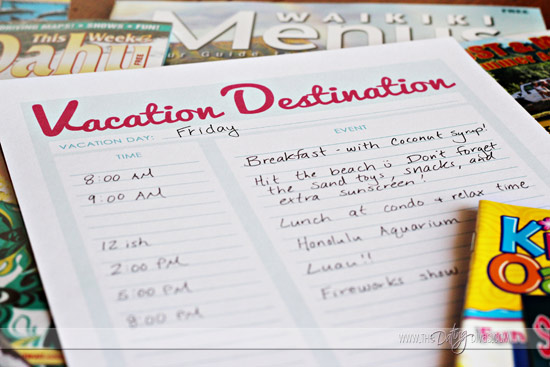 DRIVING MAPS! SHOPS FUN!
This Week
Oahu
FREE
WAIKIKI
Menus
Your Guide
FREE
Vacation Destination
VACATION DAY: Friday
TIME EVENT
8:00 AM Breakfast - with Coconut Syrup!
9:00 AM Hit the beach Don't forget
the sand toys, snacks, and
extra sunscreen!
12 ish Lunch at condo + relax time
2:00 PM Honolulu Aquarium
5:00 PM Luau!!
8:00 PM Fireworks show
Fun